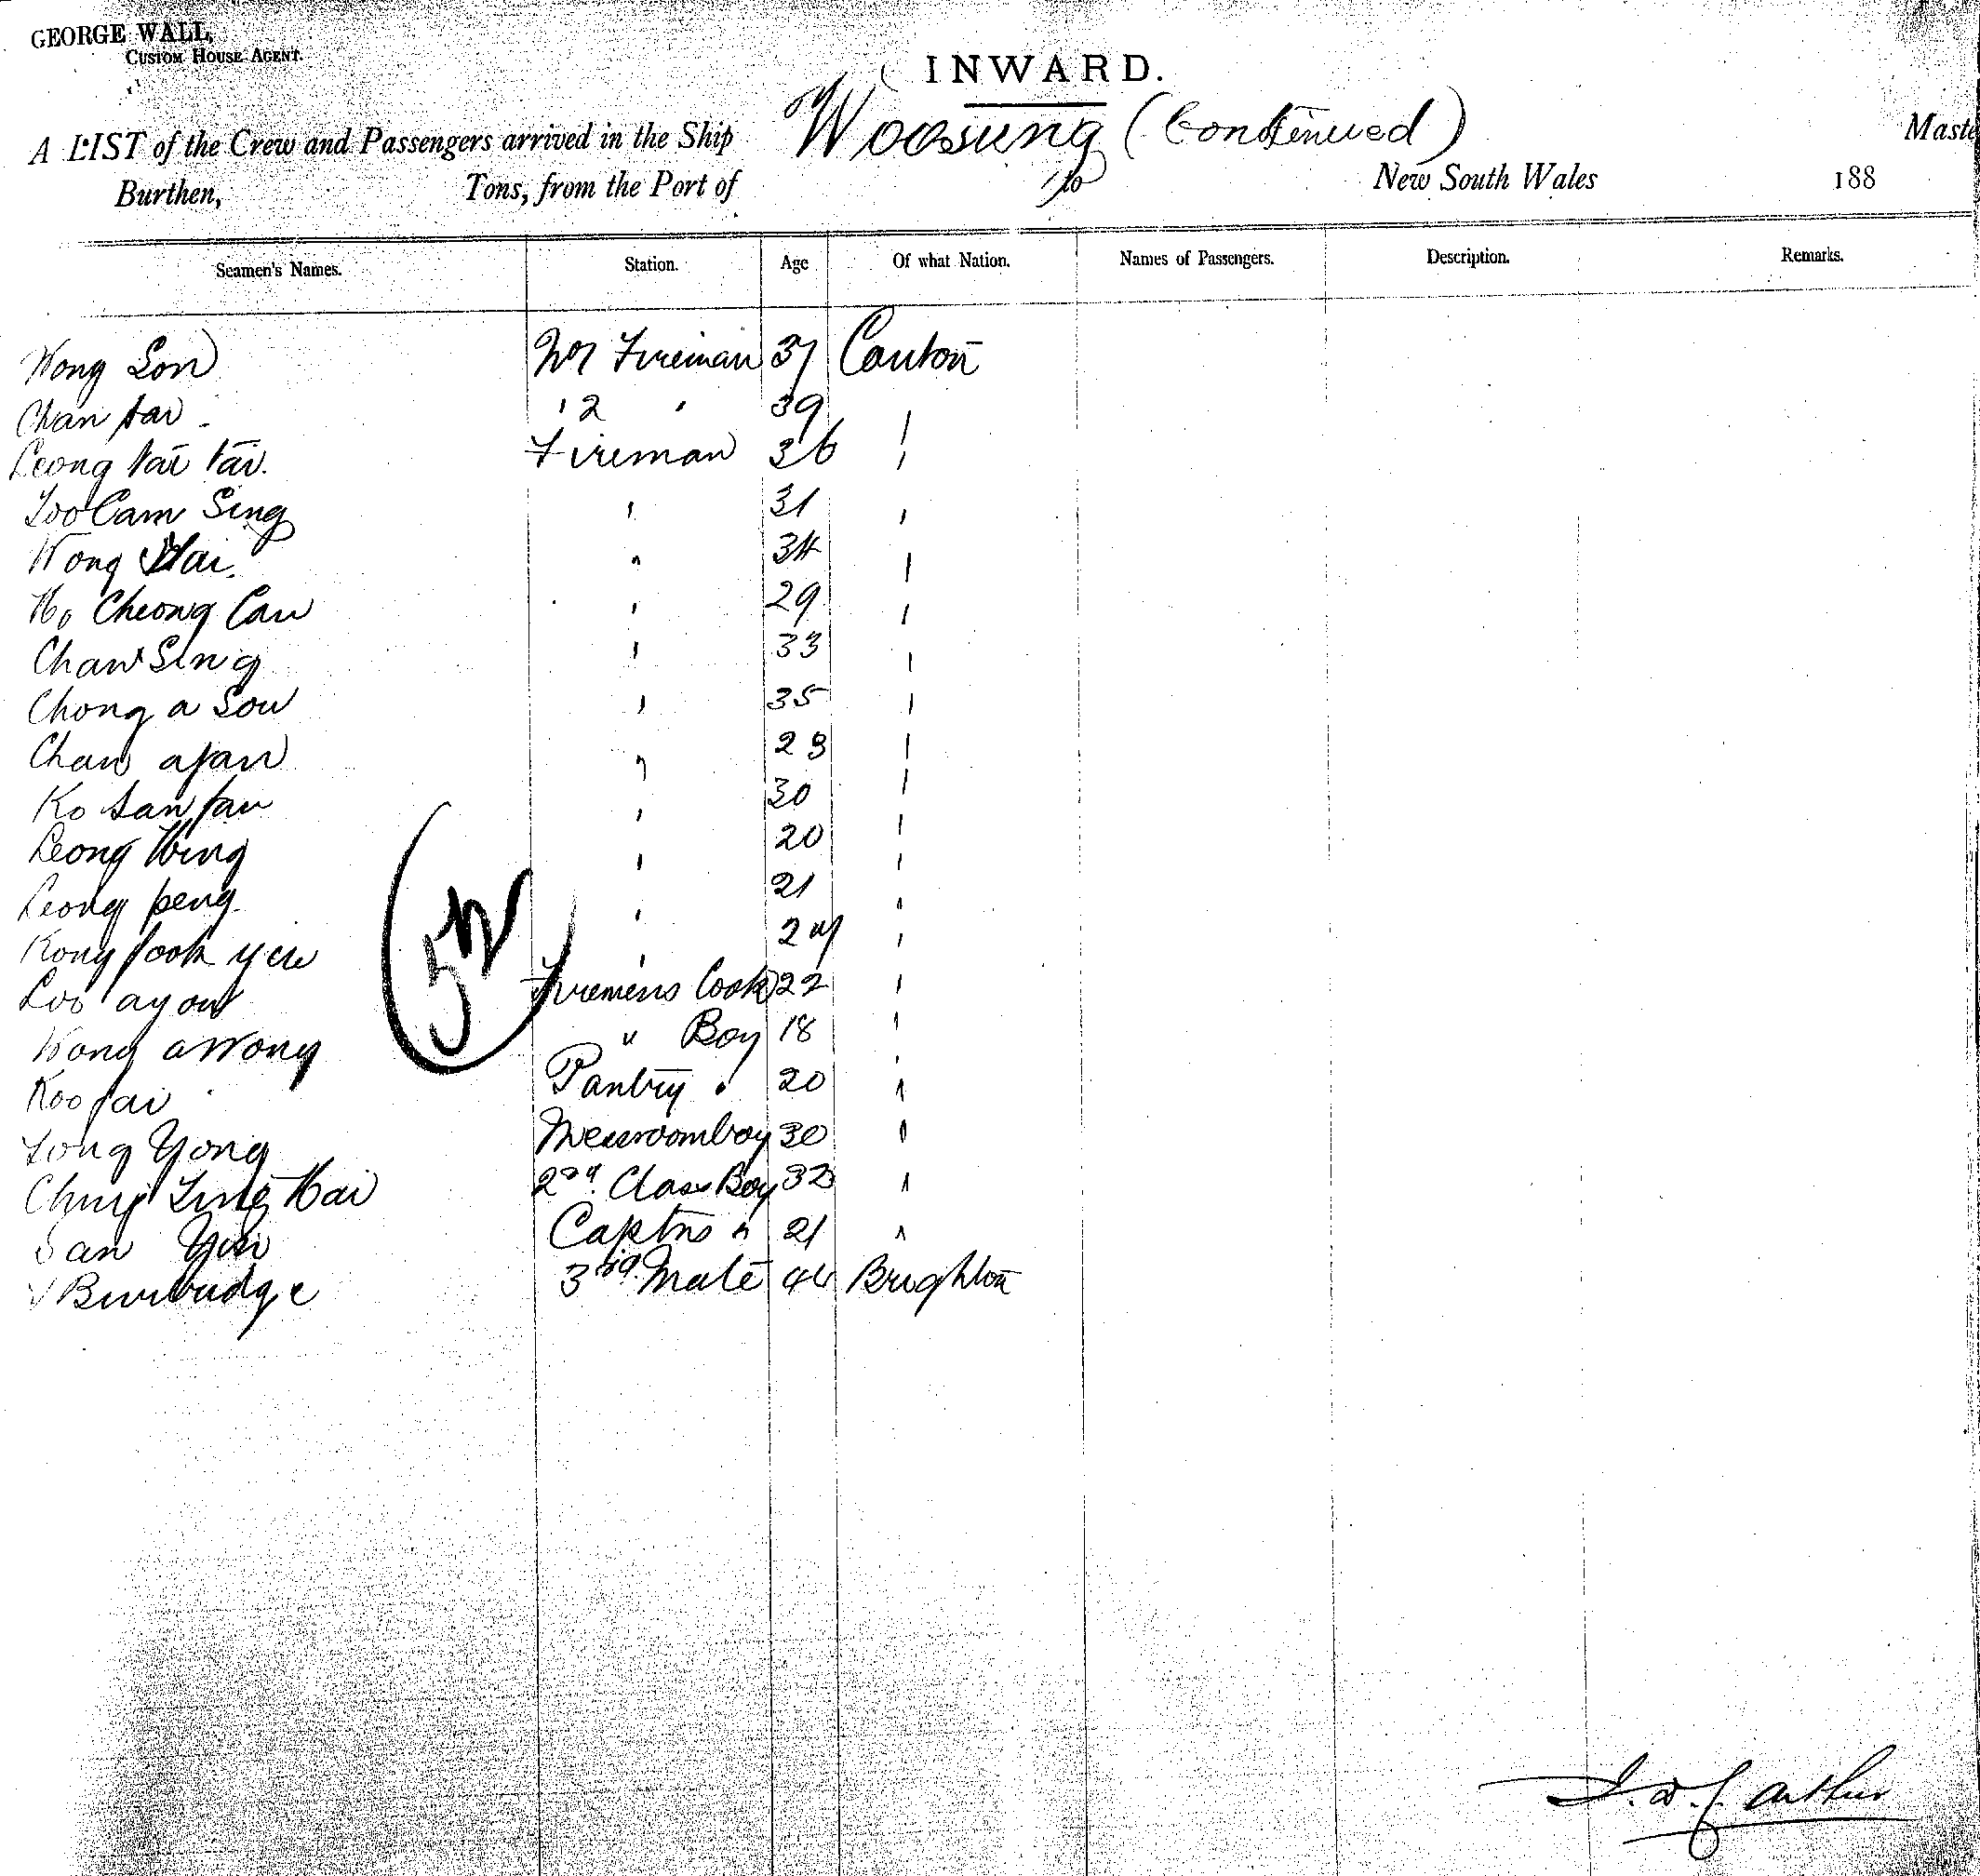 GEORGE WALL,
CUSTOM HOUSE AGENT.
INWARD.
A LIST of the Crew and Passengers arrived in the Ship Woosung (Continued) Maste
Burthen, Tons, from the Port of to New South Wales 188
Seamen's Names. Station. Age Of what Nation. Names of Passengers. Description. Remarks.
Wong Son No 1 Fireman 37 Canton
Chan tai " 2 " 39 "
Leong tai tai. Fireman 36 "
Loo Cam Sing " 31 "
Wong Hai. " 34 "
Ho Cheong Cau " 29 "
Chan Sing " 33 "
Chong a Sow " 35 "
Chan afan " 28 "
Ko San fau " 30 "
Leong Hing " 20 "
Leong peng " 21 "
Kong fook yew " 24 "
Loo ayow Firemens Cook 22 "
Wong aWong " Boy 18 "
Koo fai Pantry " 20 "
Long Yong Messroomboy 30 "
Hai 2nd Class Boy 32 "
San Yui Captns " 21 "
Burbudge 3rd Mate 44 Brighton
52
Arthur